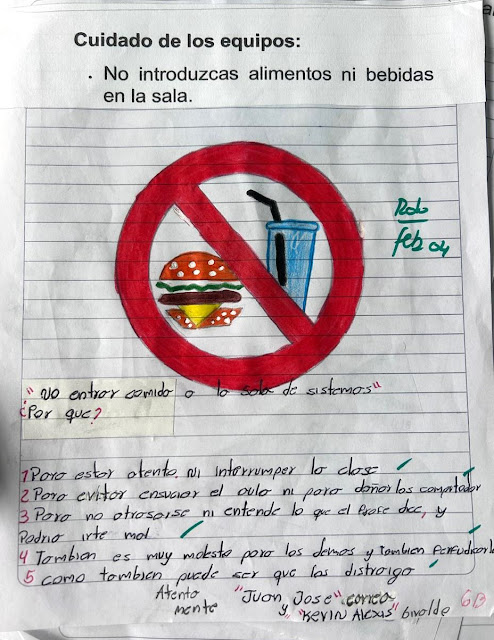 Cuidado de los equipos:
• No introduzcas alimentos ni bebidas
en la sala.
Rdo
feb 04
"NO entrar comida a la sala de sistemas"
¿Por que?
1 Para estar atento. Ni interrumper la clase
2 Para evitar ensuciar el aula ni para dañar los computador
3 Para no atrasarse ni entende lo que el Profe dce, y
Podria irte mal.
4 Tambien es muy molesto para los demas y tambien Perjudicarla
5 como tambien puede ser que los distraiga
Atenta
mente
"Juan Jose" correa
y "Kevin Alexis" 6B